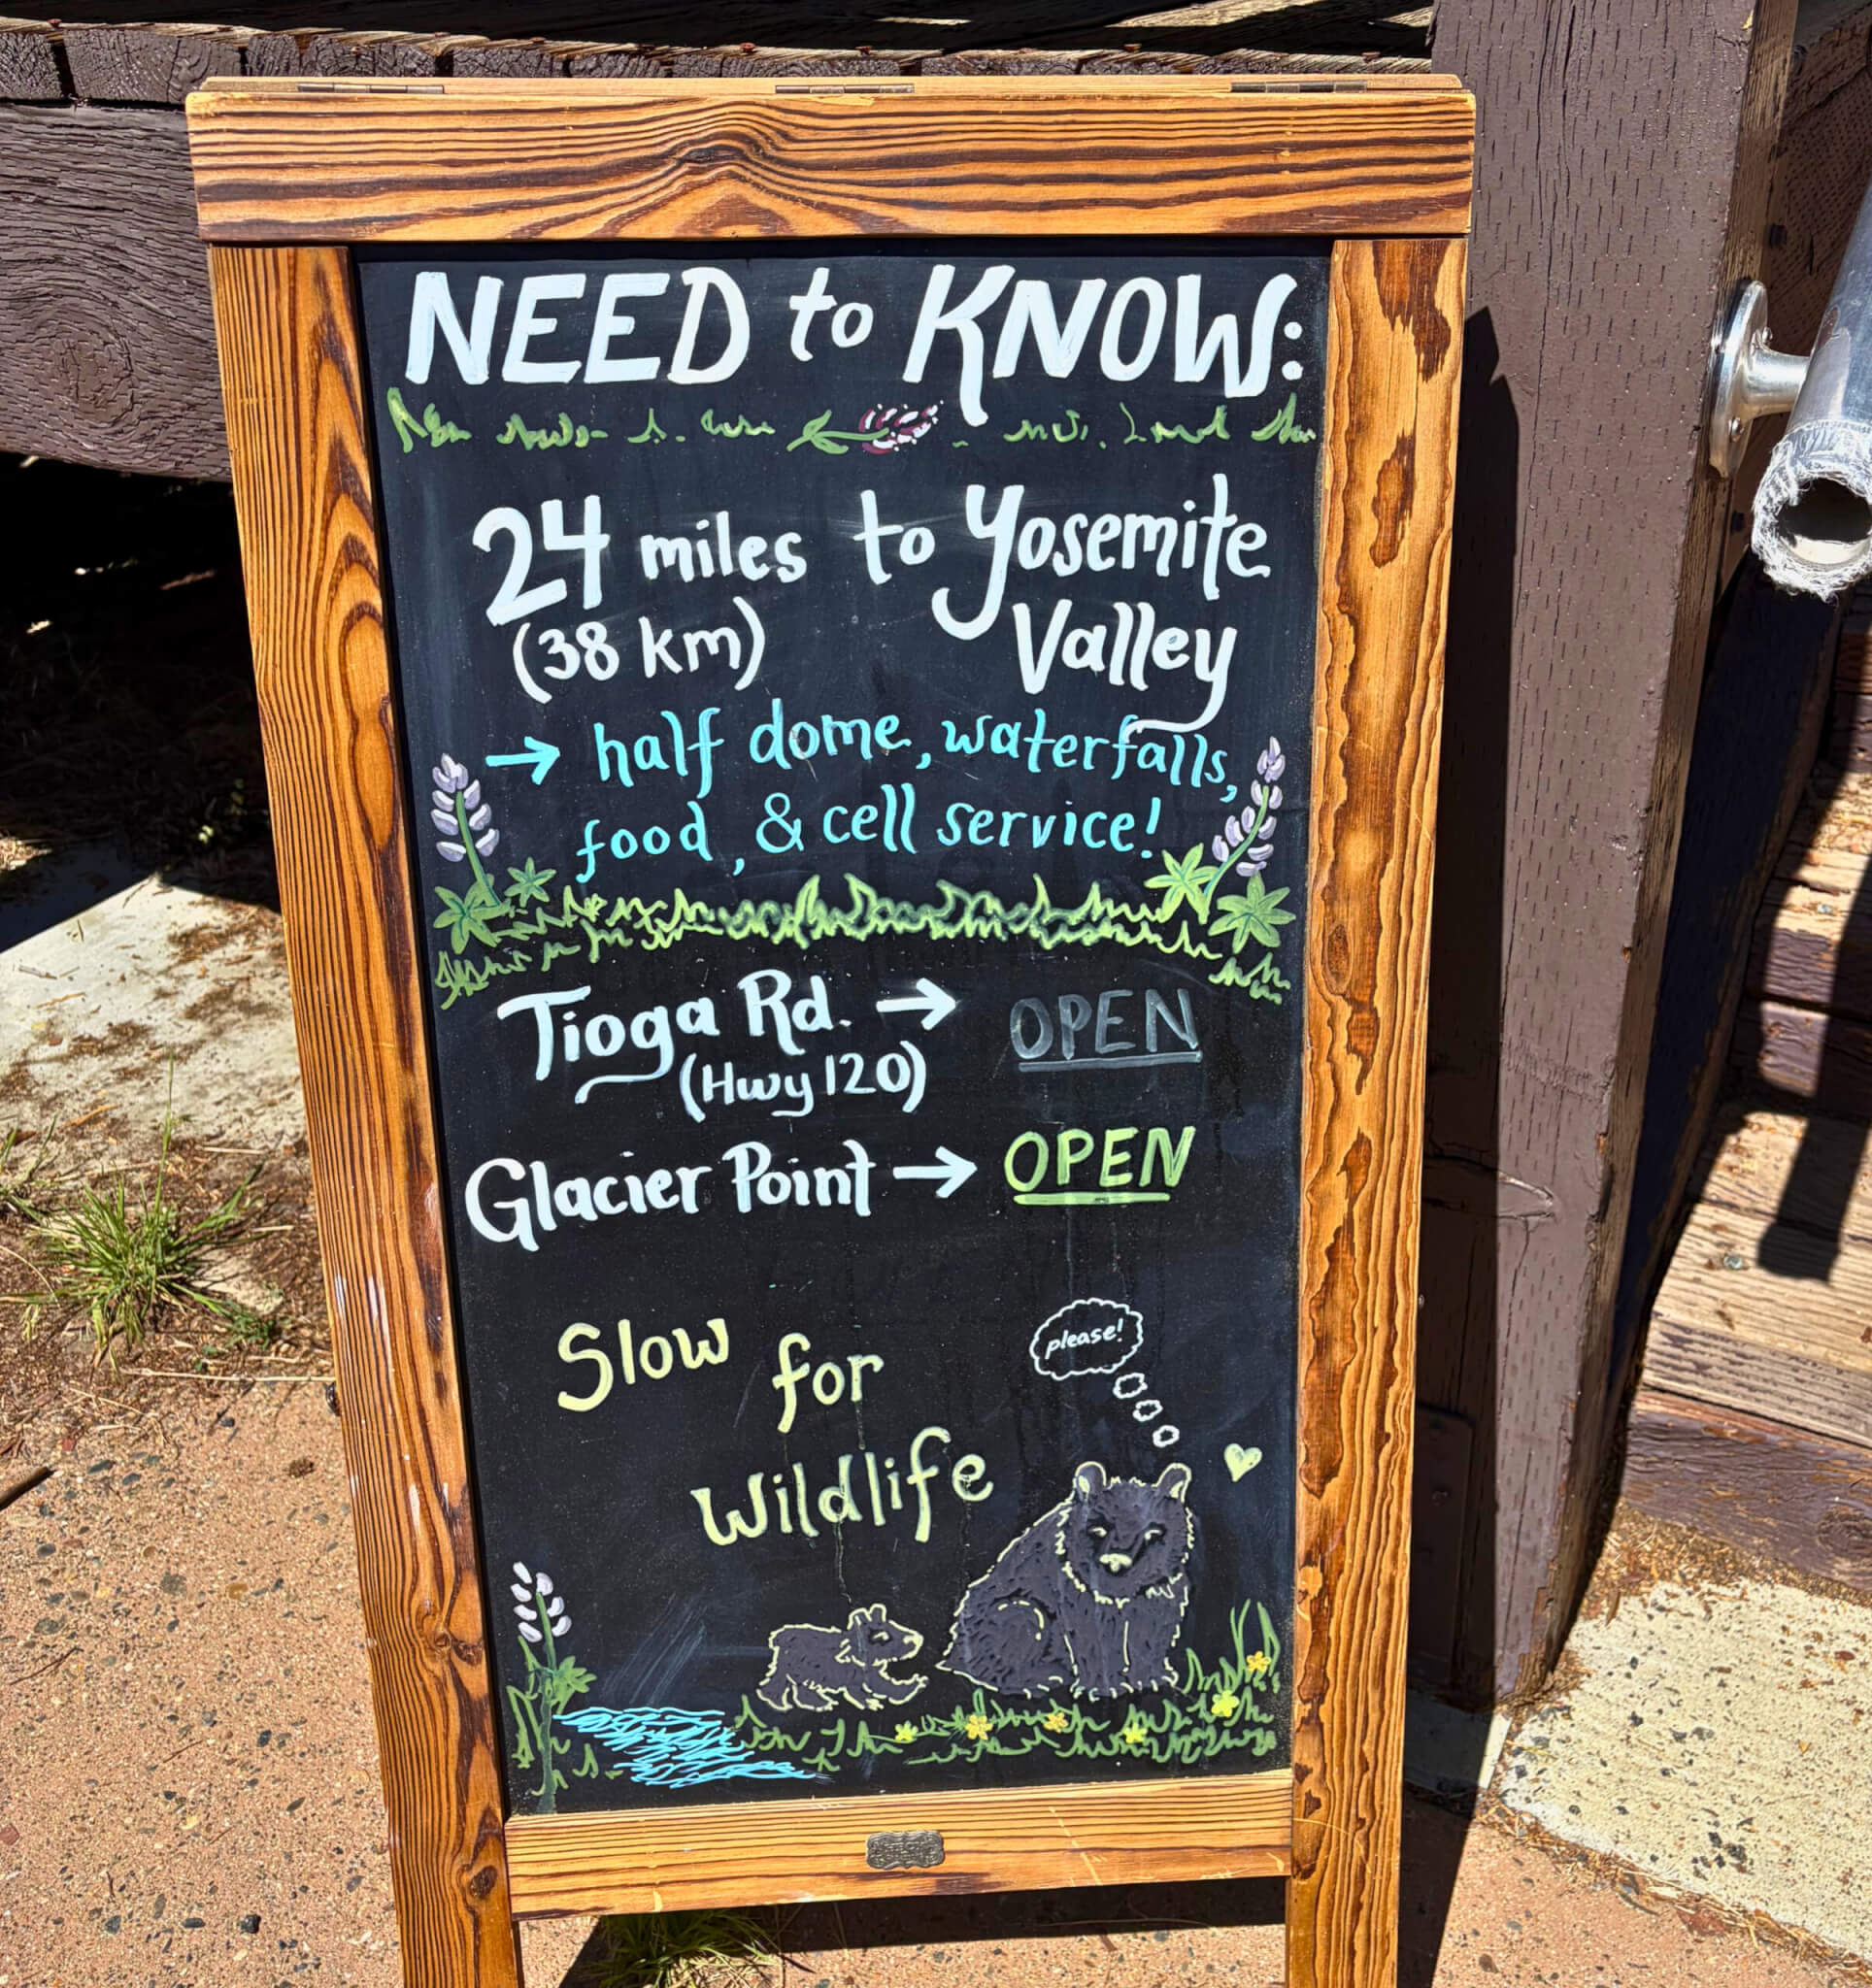 NEED to KNOW:
24 miles to Yosemite
(38 km) Valley
→ half dome, waterfalls,
food, & cell service!
Tioga Rd. → OPEN
(Hwy 120)
Glacier Point → OPEN
Slow for
Wildlife
please!